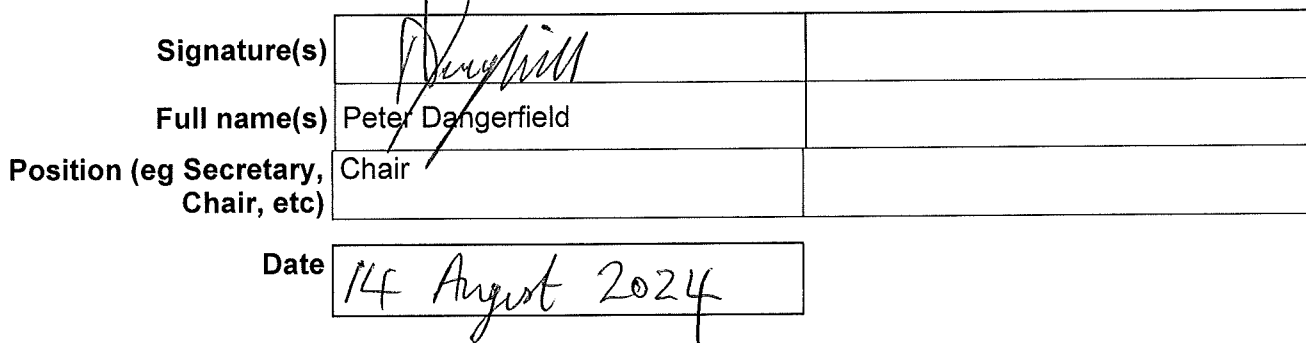 Signature(s)
Full name(s) Peter Dangerfield
Position (eg Secretary, Chair
Chair, etc)
Date 14 August 2024